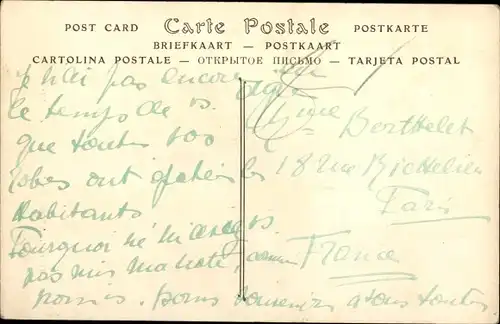 POST CARD Carte Postale POSTKARTE
BRIEFKAART — POSTKAART
CARTOLINA POSTALE — ОТКРЫТОЕ ПИСЬМО — TARJETA POSTAL
Je n'ai pas encore eu
le temps de vs
que toutes vos
robes ont les
habitants
Pourquoi ne m'avez vs
pas mis ma note,
promis. bons souvenirs à tous toutes
Mme Berthelet
18 rue Richelieu
Paris
France